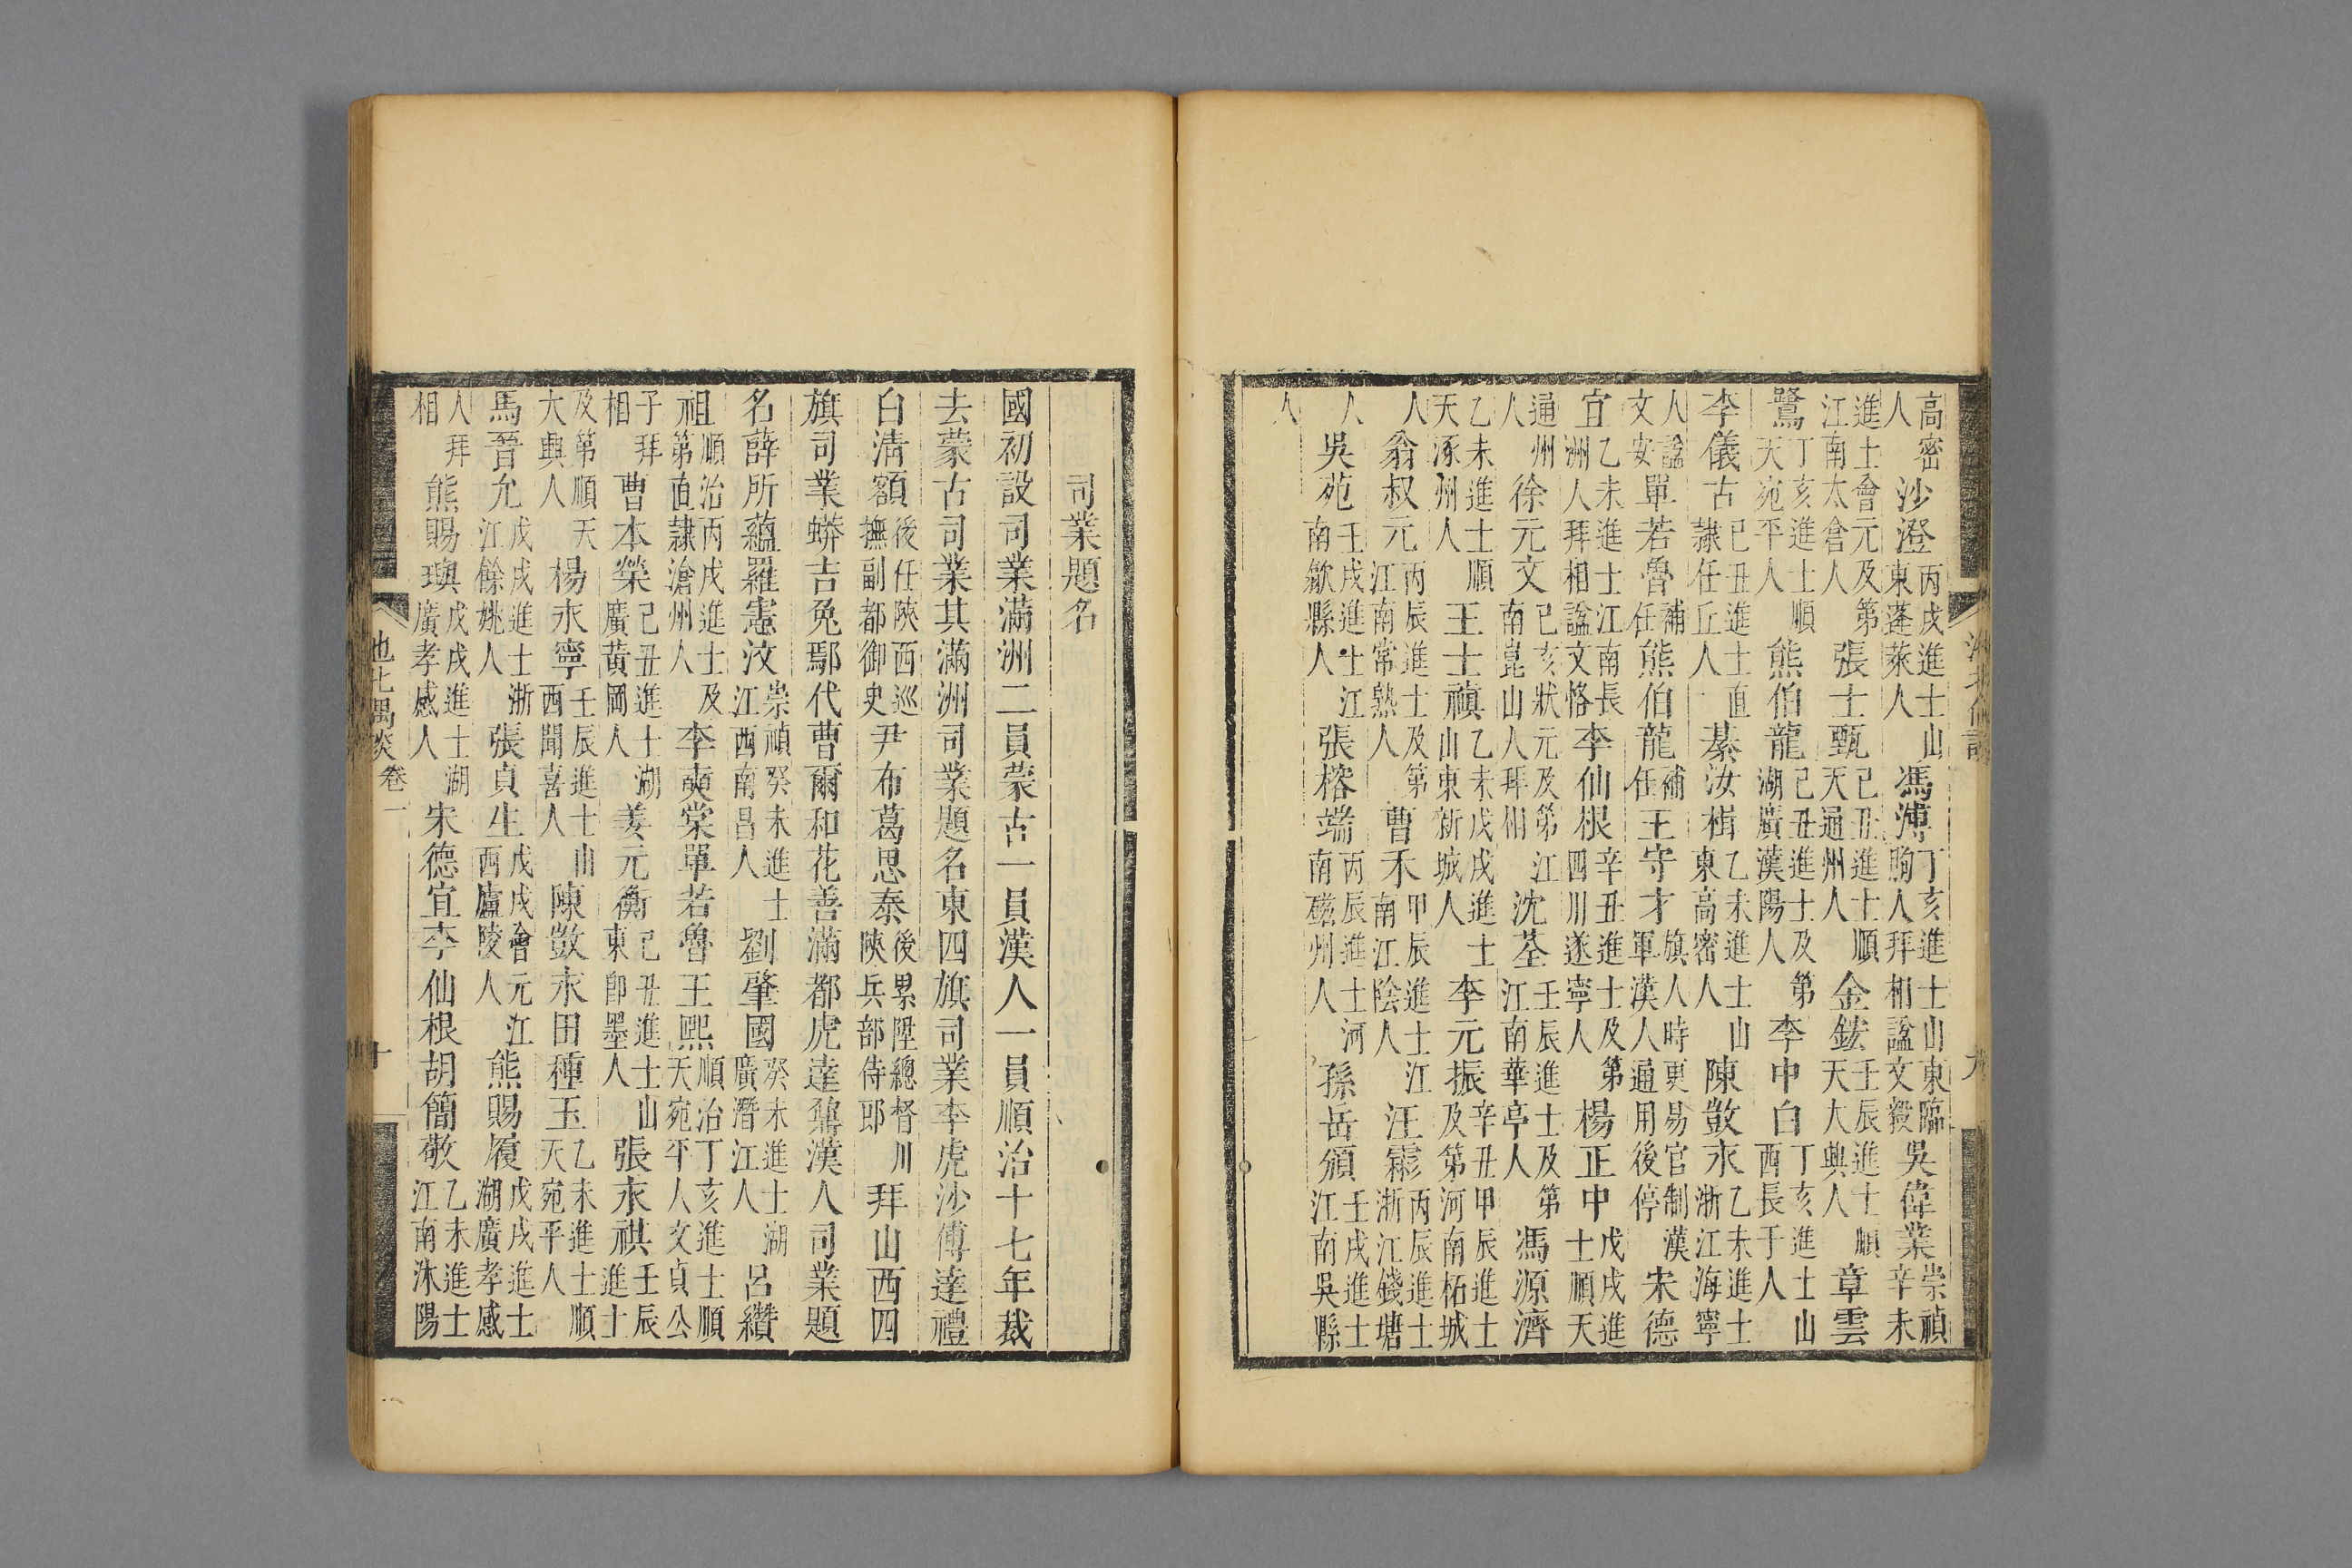 高密人沙澄丙戌進士山東蓬萊人馮溥丁亥進士山東臨朐人拜相諡文毅吳偉業崇禎辛未
進士會元及第江南太倉人張士甄己丑進士順天通州人金鋐壬辰進士順天大興人章雲
鷺丁亥進士順天宛平人熊伯龍己丑進士及第湖廣漢陽人李中白丁亥進士山西長子人
李儀古己丑進士直隷任丘人綦汝楫乙未進士山東高密人陳敱永乙未進士浙江海寧
人諡文安單若魯補任熊伯龍補任王守才旗人時更易官制漢軍漢人通用後停宋德
宜乙未進士江南長洲人拜相諡文恪李仙根辛丑進士及第四川遂寧人楊正中戊戌進士順天
通州人徐元文己亥狀元及第江南崑山人拜相沈荃壬辰進士及第江南華亭人馮源濟
乙未進士順天涿州人王士禛乙未戊戌進士山東新城人李元振辛丑甲辰進士及第河南柘城
人翁叔元丙辰進士及第江南常熟人曹禾甲辰進士江南江陰人汪霦丙辰進士浙江錢塘
人吳苑壬戌進士江南歙縣人張榕端丙辰進士河南磁州人孫岳頒壬戌進士江南吳縣
人
九
司業題名
國初設司業滿洲二員蒙古一員漢人一員順治十七年裁
去蒙古司業其滿洲司業題名東四旗司業李虎沙傅達禮
白清額後任陝西巡撫副都御史尹布葛思泰後累陞總督川陝兵部侍郎拜山西四
旗司業蟒吉兔鄢代曹爾和花善滿都虎達鼐漢人司業題
名薛所蘊羅憲汶崇禎癸未進士江西南昌人劉肇國癸未進士湖廣潛江人呂纘
祖順治丙戌進士及第直隷滄州人李奭棠單若魯王熙順治丁亥進士順天宛平人文貞公
子拜相曹本榮己丑進士湖廣黃岡人姜元衡己丑進士山東卽墨人張永祺壬辰進士
及第順天大興人楊永寧壬辰進士山西聞喜人陳敱永田種玉乙未進士順天宛平人
馬晉允戊戌進士浙江餘姚人張貞生戊戌會元江西廬陵人熊賜履戊戌進士湖廣孝感
人拜相熊賜璵戊戌進士湖廣孝感人宋德宜李仙根胡簡敬乙未進士江南沭陽
池北偶談卷一
十